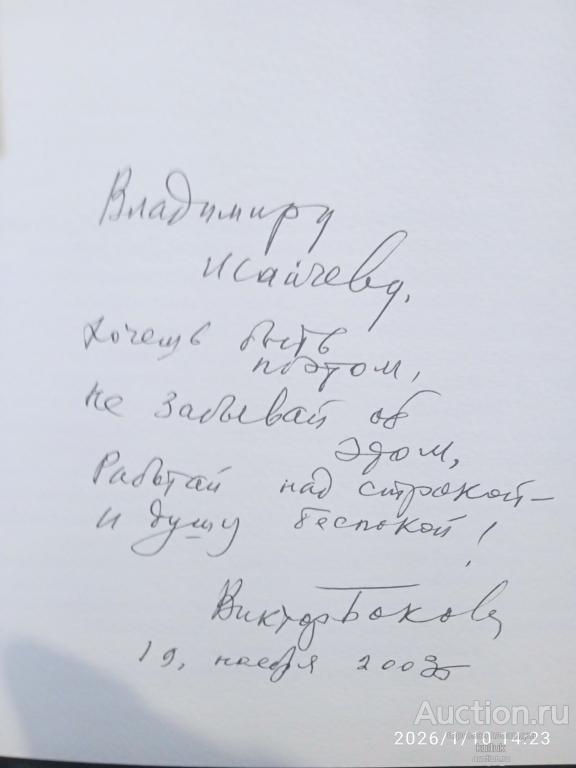 Владимиру
Исайчеву,
Хочешь быть
поэтом,
Не забывай об
этом,
Работай над строкой –
и душу беспокой!
Виктор Боков
19, ноября
Auction.ru
2026/1/10 14:23
kutuk
auction.ru